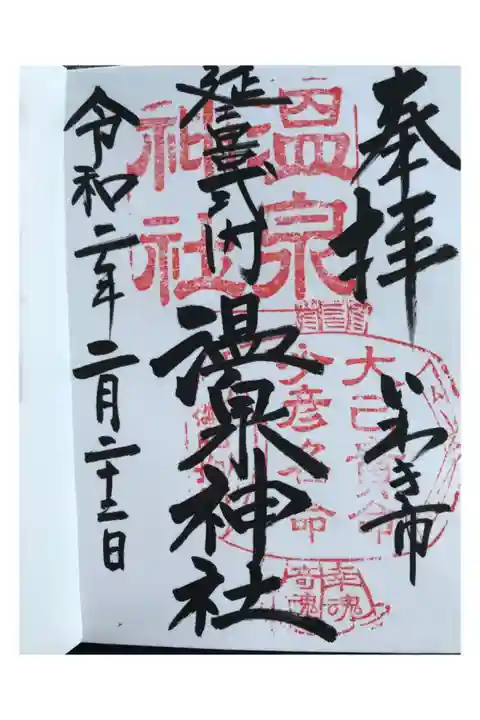 奉拝
いわき市
延喜式内
温泉神社
令和二年二月二十三日
温泉
神社
大己貴命
少彦名命
幸魂
奇魂